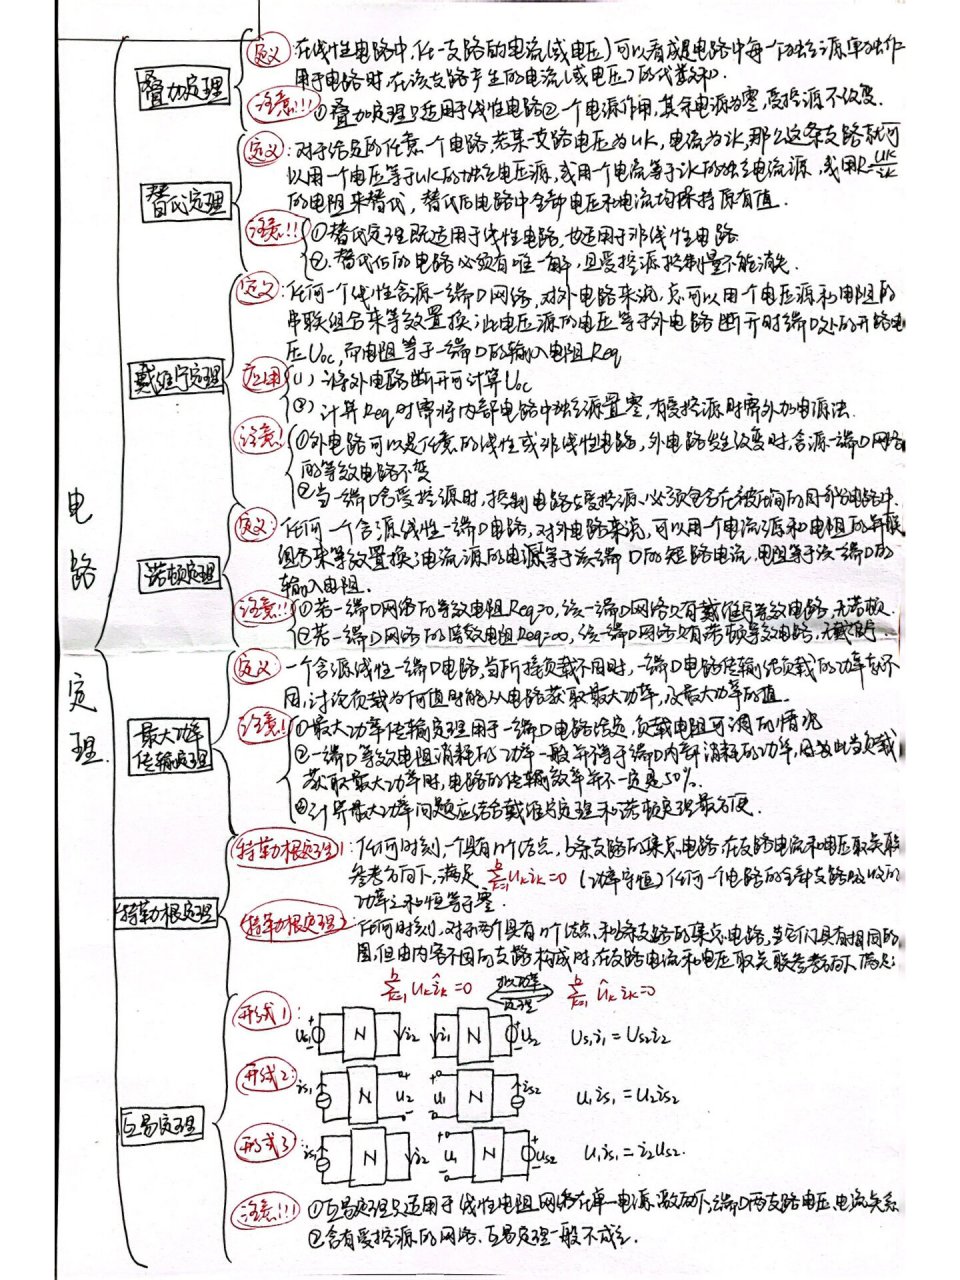 电路定理
叠加定理
定义：在线性电路中，任一支路的电流（或电压）可以看成是电路中每一个独立源单独作
用于电路时，在该支路产生的电流（或电压）的代数和.
注意!!! ①叠加定理只适用于线性电路②一个电源作用，其余电源为零，受控源不改变.
替代定理
定义：对于给定的任意一个电路，若某一支路电压为uk，电流为ik，那么这条支路就可
以用一个电压等于uk的独立电压源，或用一个电流等于ik的独立电流源，或用R=uk/ik
的电阻来替代，替代后电路中全部电压和电流均保持原有值.
注意!! ①替代定理既适用于线性电路，也适用于非线性电路
②.替代后的电路必须有唯一解，且受控源控制量不能消失.
戴维宁定理
定义：任何一个线性含源一端口网络，对外电路来说，总可以用一个电压源和电阻的
串联组合来等效置换；此电压源的电压等于外电路断开时端口处的开路电
压Uoc，而电阻等于一端口的输入电阻Req
应用 (1) 将外电路断开可计算Uoc
(2) 计算Req时需将内部电路中独立源置零，有受控源时需外加电源法.
注意! ①外电路可以是任意的线性或非线性电路，外电路发生改变时，含源一端口网络
的等效电路不变
②当一端口含受控源时，控制电路与受控源必须包含在被化简的同一部分电路中.
诺顿定理
定义：任何一个含源线性一端口电路，对外电路来说，可以用一个电流源和电阻的并联
组合来等效置换；电流源的电源等于该端口的短路电流，电阻等于该一端口的
输入电阻.
注意!! ①若一端口网络的等效电阻Req=0，该一端口网络只有戴维宁等效电路，无诺顿.
②若一端口网络的等效电阻Req=∞，该一端口网络只有诺顿等效电路，无戴
最大功率
传输定理
定义：一个含源线性一端口电路，当所接负载不同时，一端口电路传输给负载的功率就不
同，讨论负载为何值时能从电路获取最大功率，及最大功率的值.
注意! ①最大功率传输定理用于一端口电路给定，负载电阻可调的情况
②一端口等效电阻消耗的功率一般并不等于端口内部消耗的功率，因此当负载
获取最大功率时，电路的传输效率并不一定是50%.
③计算最大功率问题应结合戴维宁定理和诺顿定理最方便.
特勒根定理
特勒根定理1：任何时刻，一个具有n个结点，b条支路的集总电路，在支路电流和电压取关联
参考方向下，满足 ∑ukik=0 （功率守恒）任何一个电路的全部支路吸收的
功率之和恒等于零.
特勒根定理2：任何时刻，对于两个具有n个结点和b条支路的集总电路，当它们具有相同的
图，但由内容不同的支路构成时，在支路电流和电压取关联参考方向下满足：
∑ukîk=0 拟功率定理 ∑ûkik=0
互易定理
形式1： us1 N i2 i1 N us2 Us1i1=Us2i2
形式2： is1 N u2 u1 N is2 U1is1=U2is2
形式3： is1 N i2 u1 N us2 U1is1=i2us2.
注意!!! ①互易定理只适用于线性电阻网络在单一电源激励下，端口两支路电压、电流关系
②含有受控源的网络，互易定理一般不成立.